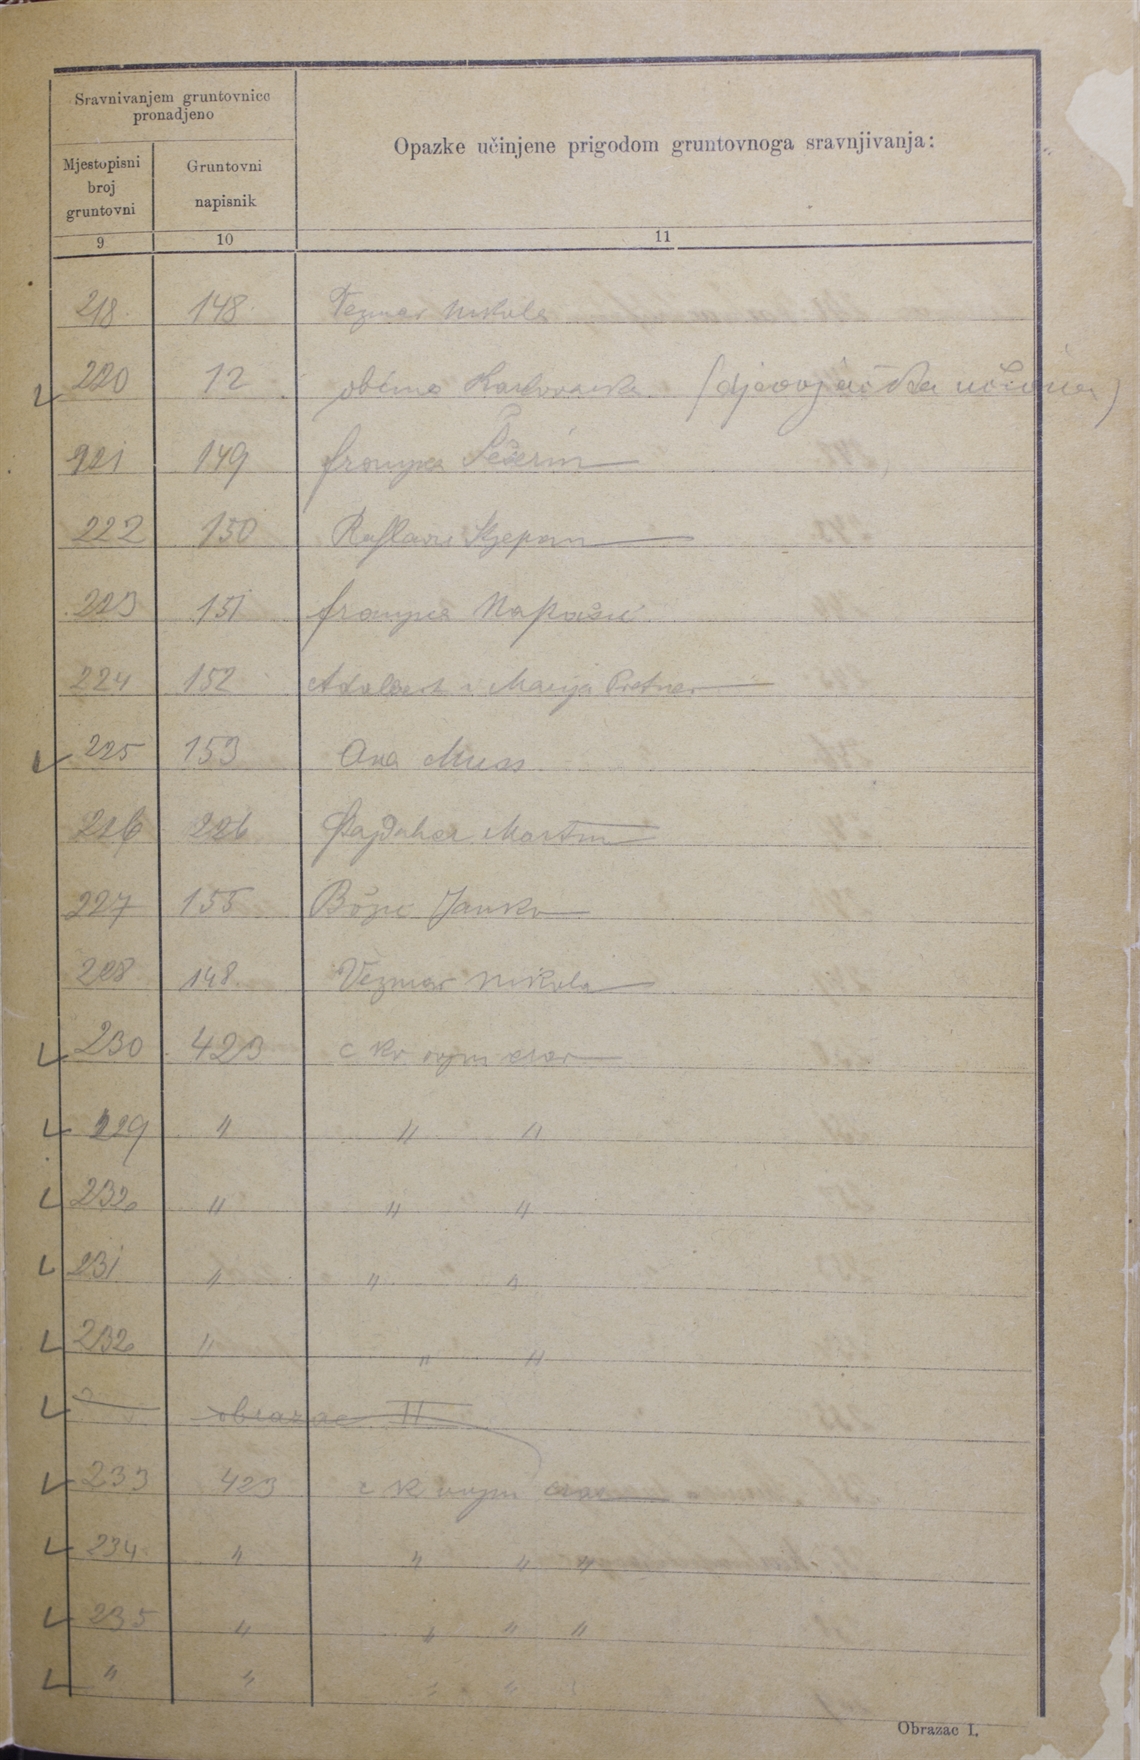 Sravnivanjem gruntovnice
pronadjeno
Opazke učinjene prigodom gruntovnoga sravnjivanja:
Mjestopisni
broj
gruntovni
Gruntovni
napisnik
9 10 11
218 148 Vezmar Nikola
220 12 obćina (djevojačka učiona)
221 149 Franjka
222 150 Stjepan
223 151 Franjka
224 152 Adalbert i Marija Pretner
225 153 Ana Muss
226 226 Martin
227 155 Božić Janko
228 148 Vezmar Nikola
230 423 c kr vojni erar
229 " " "
232 " " "
231 " " "
232 " " "
obrazac II
233 423 c k vojni erar
234 " " " "
235 " " " "
" " " "
Obrazac I.